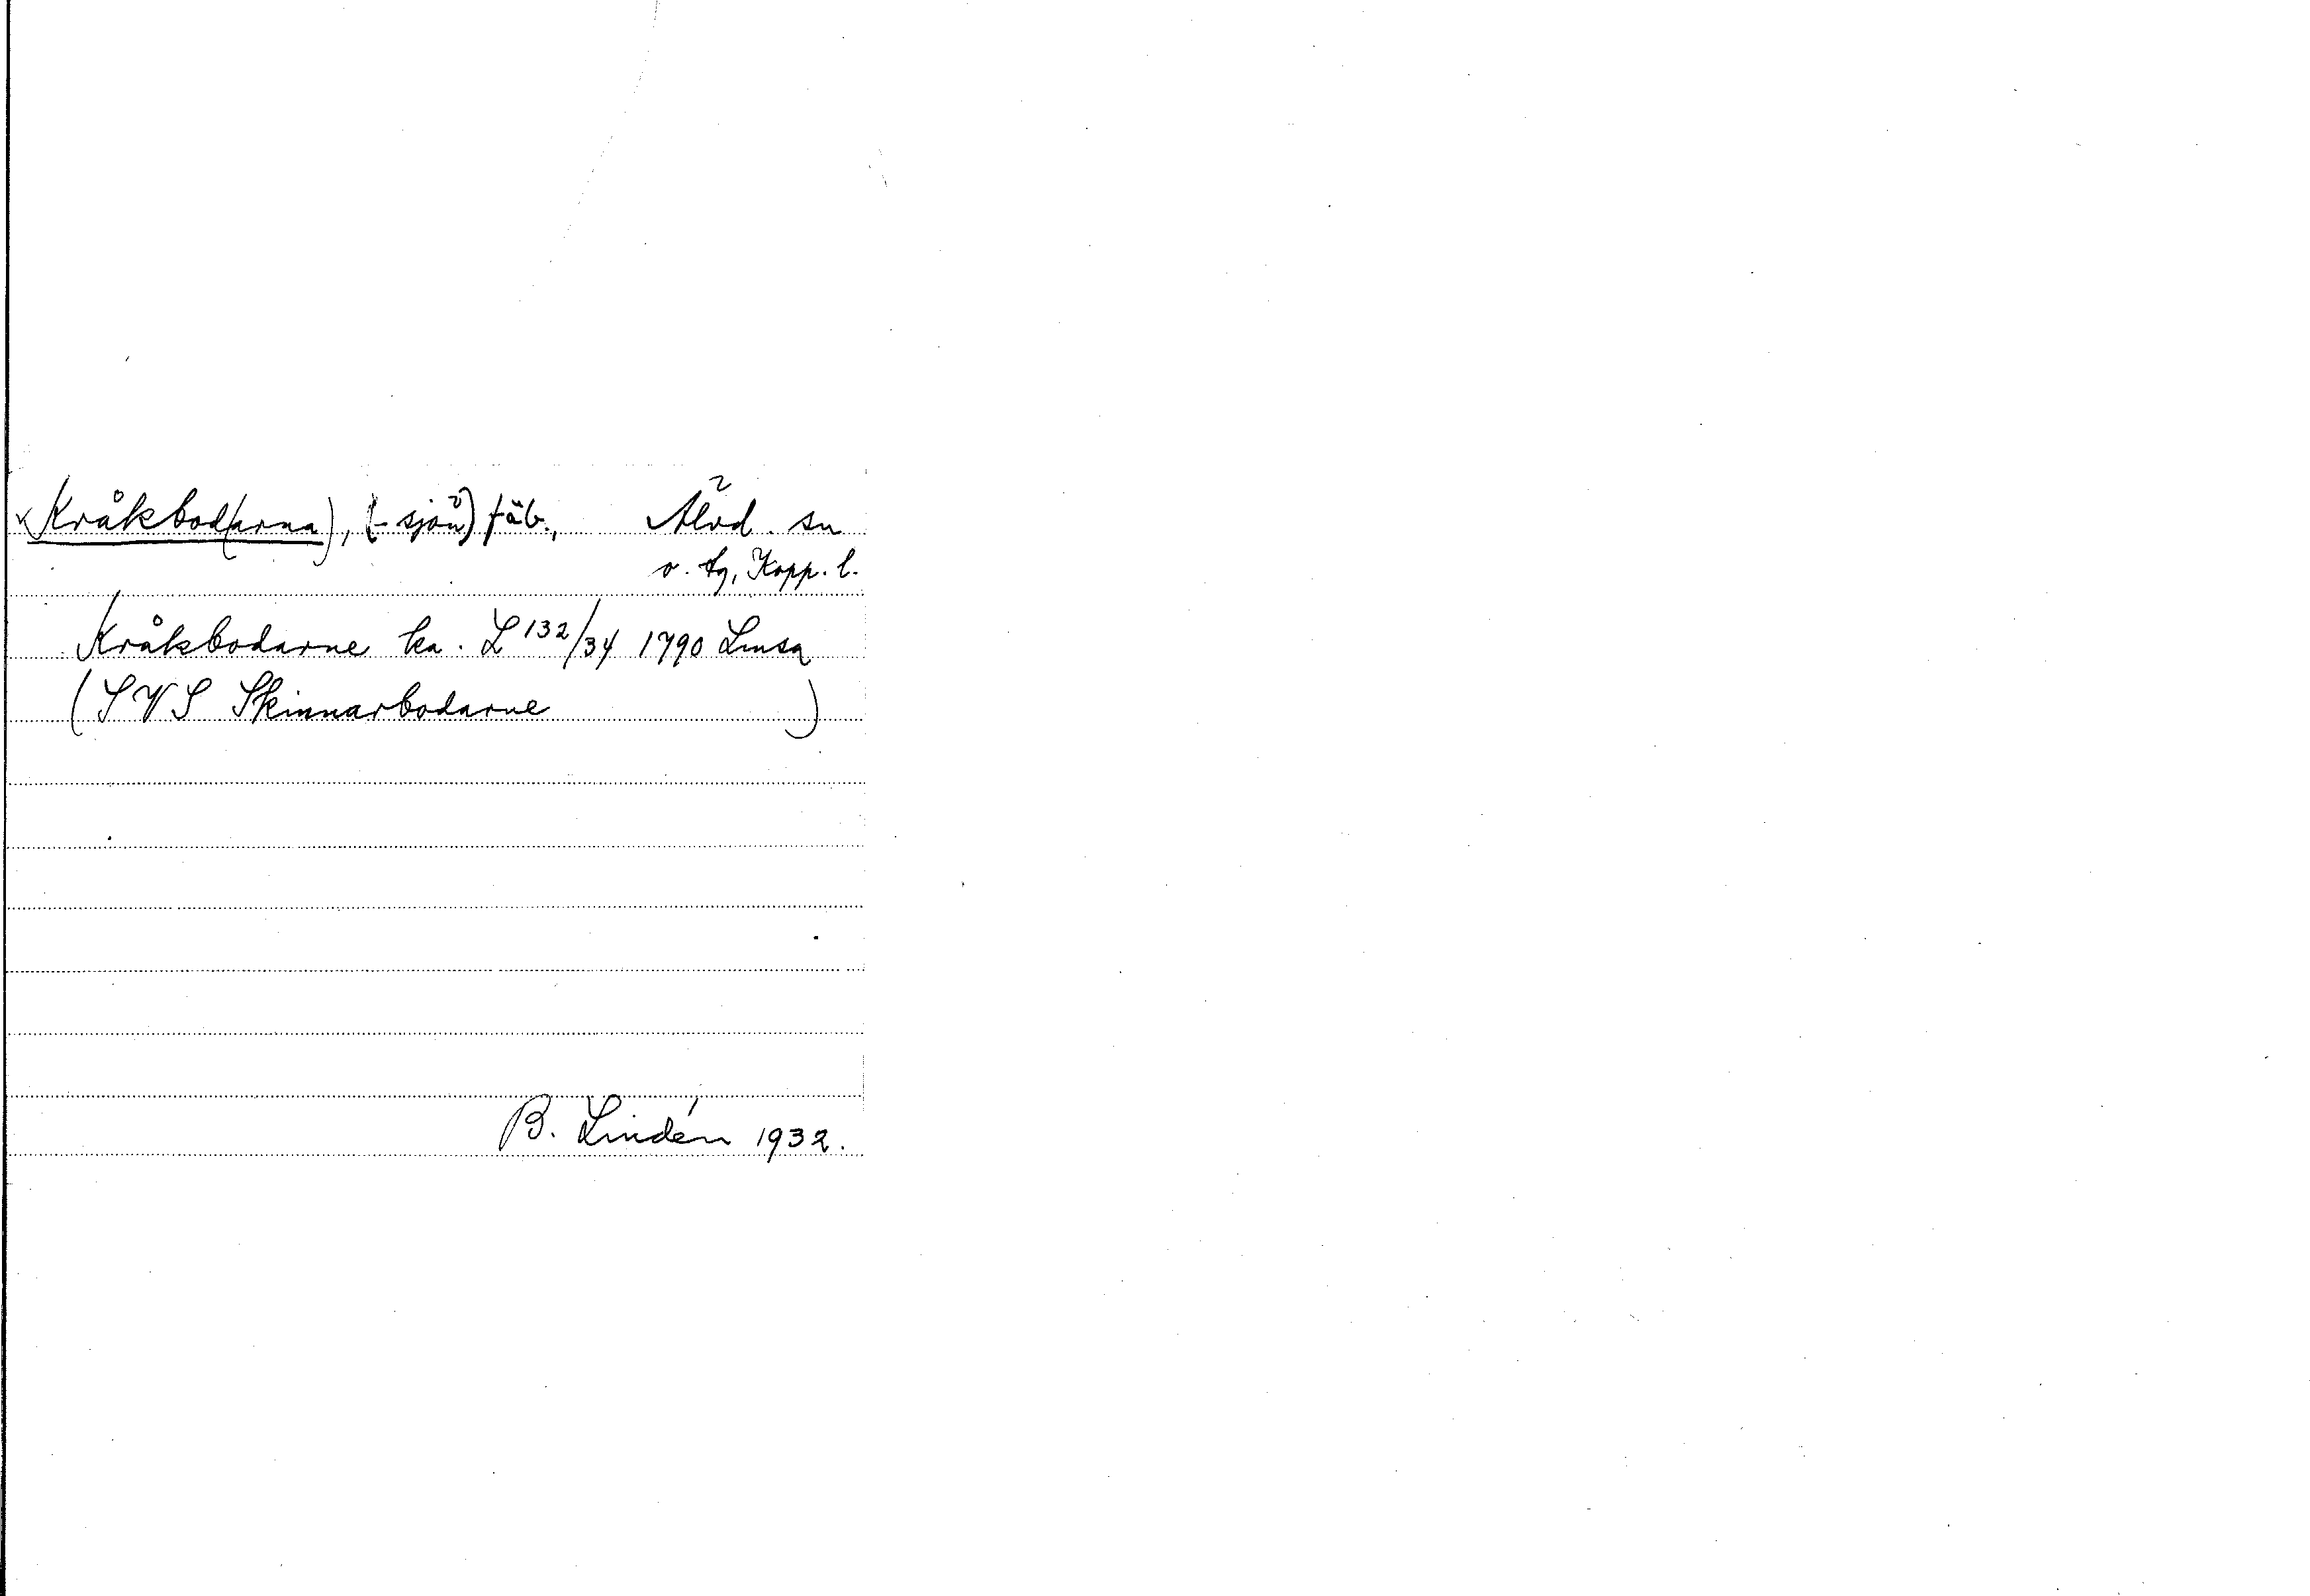 Kråkbod(arna), (-sjön) fäb., Älvd. sn
o. tg, Kopp. l.
Kråkbodarne ka. L 132/34 1790 Lmsa
(SVS Skinnarbodarne )
B. Lindén 1932.